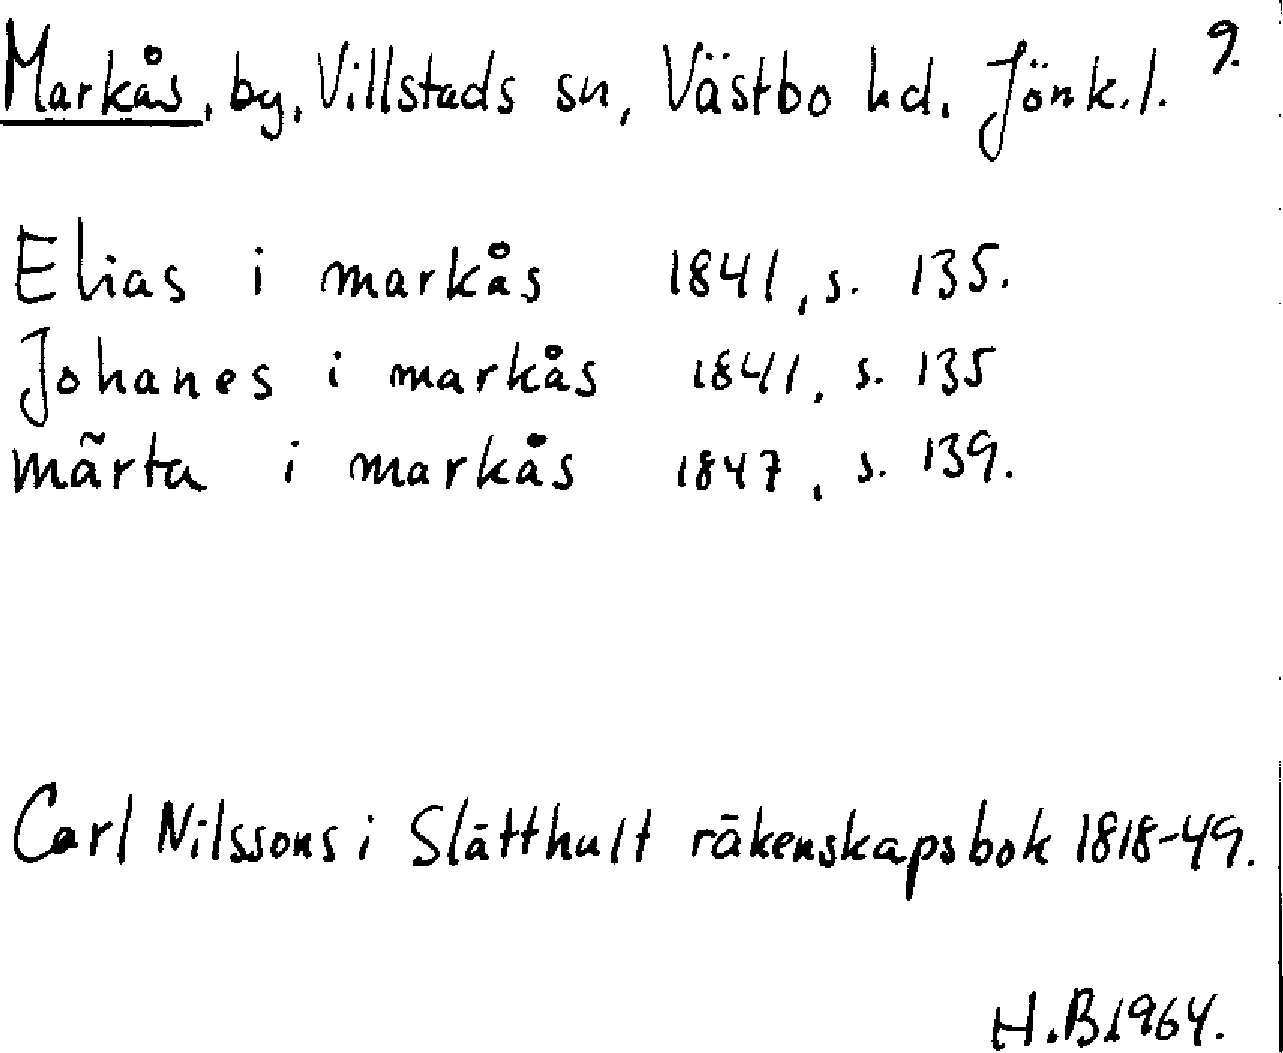 Markås, by, Villstads sn, Västbo hd. Jönk.l. 9.
Elias i markås 1841, s. 135.
Johanes i markås 1841, s. 135
mãrta i markås 1847, s. 139.
Carl Nilssons i Slätthult räkenskapsbok 1818-49.
H.B. 1964.